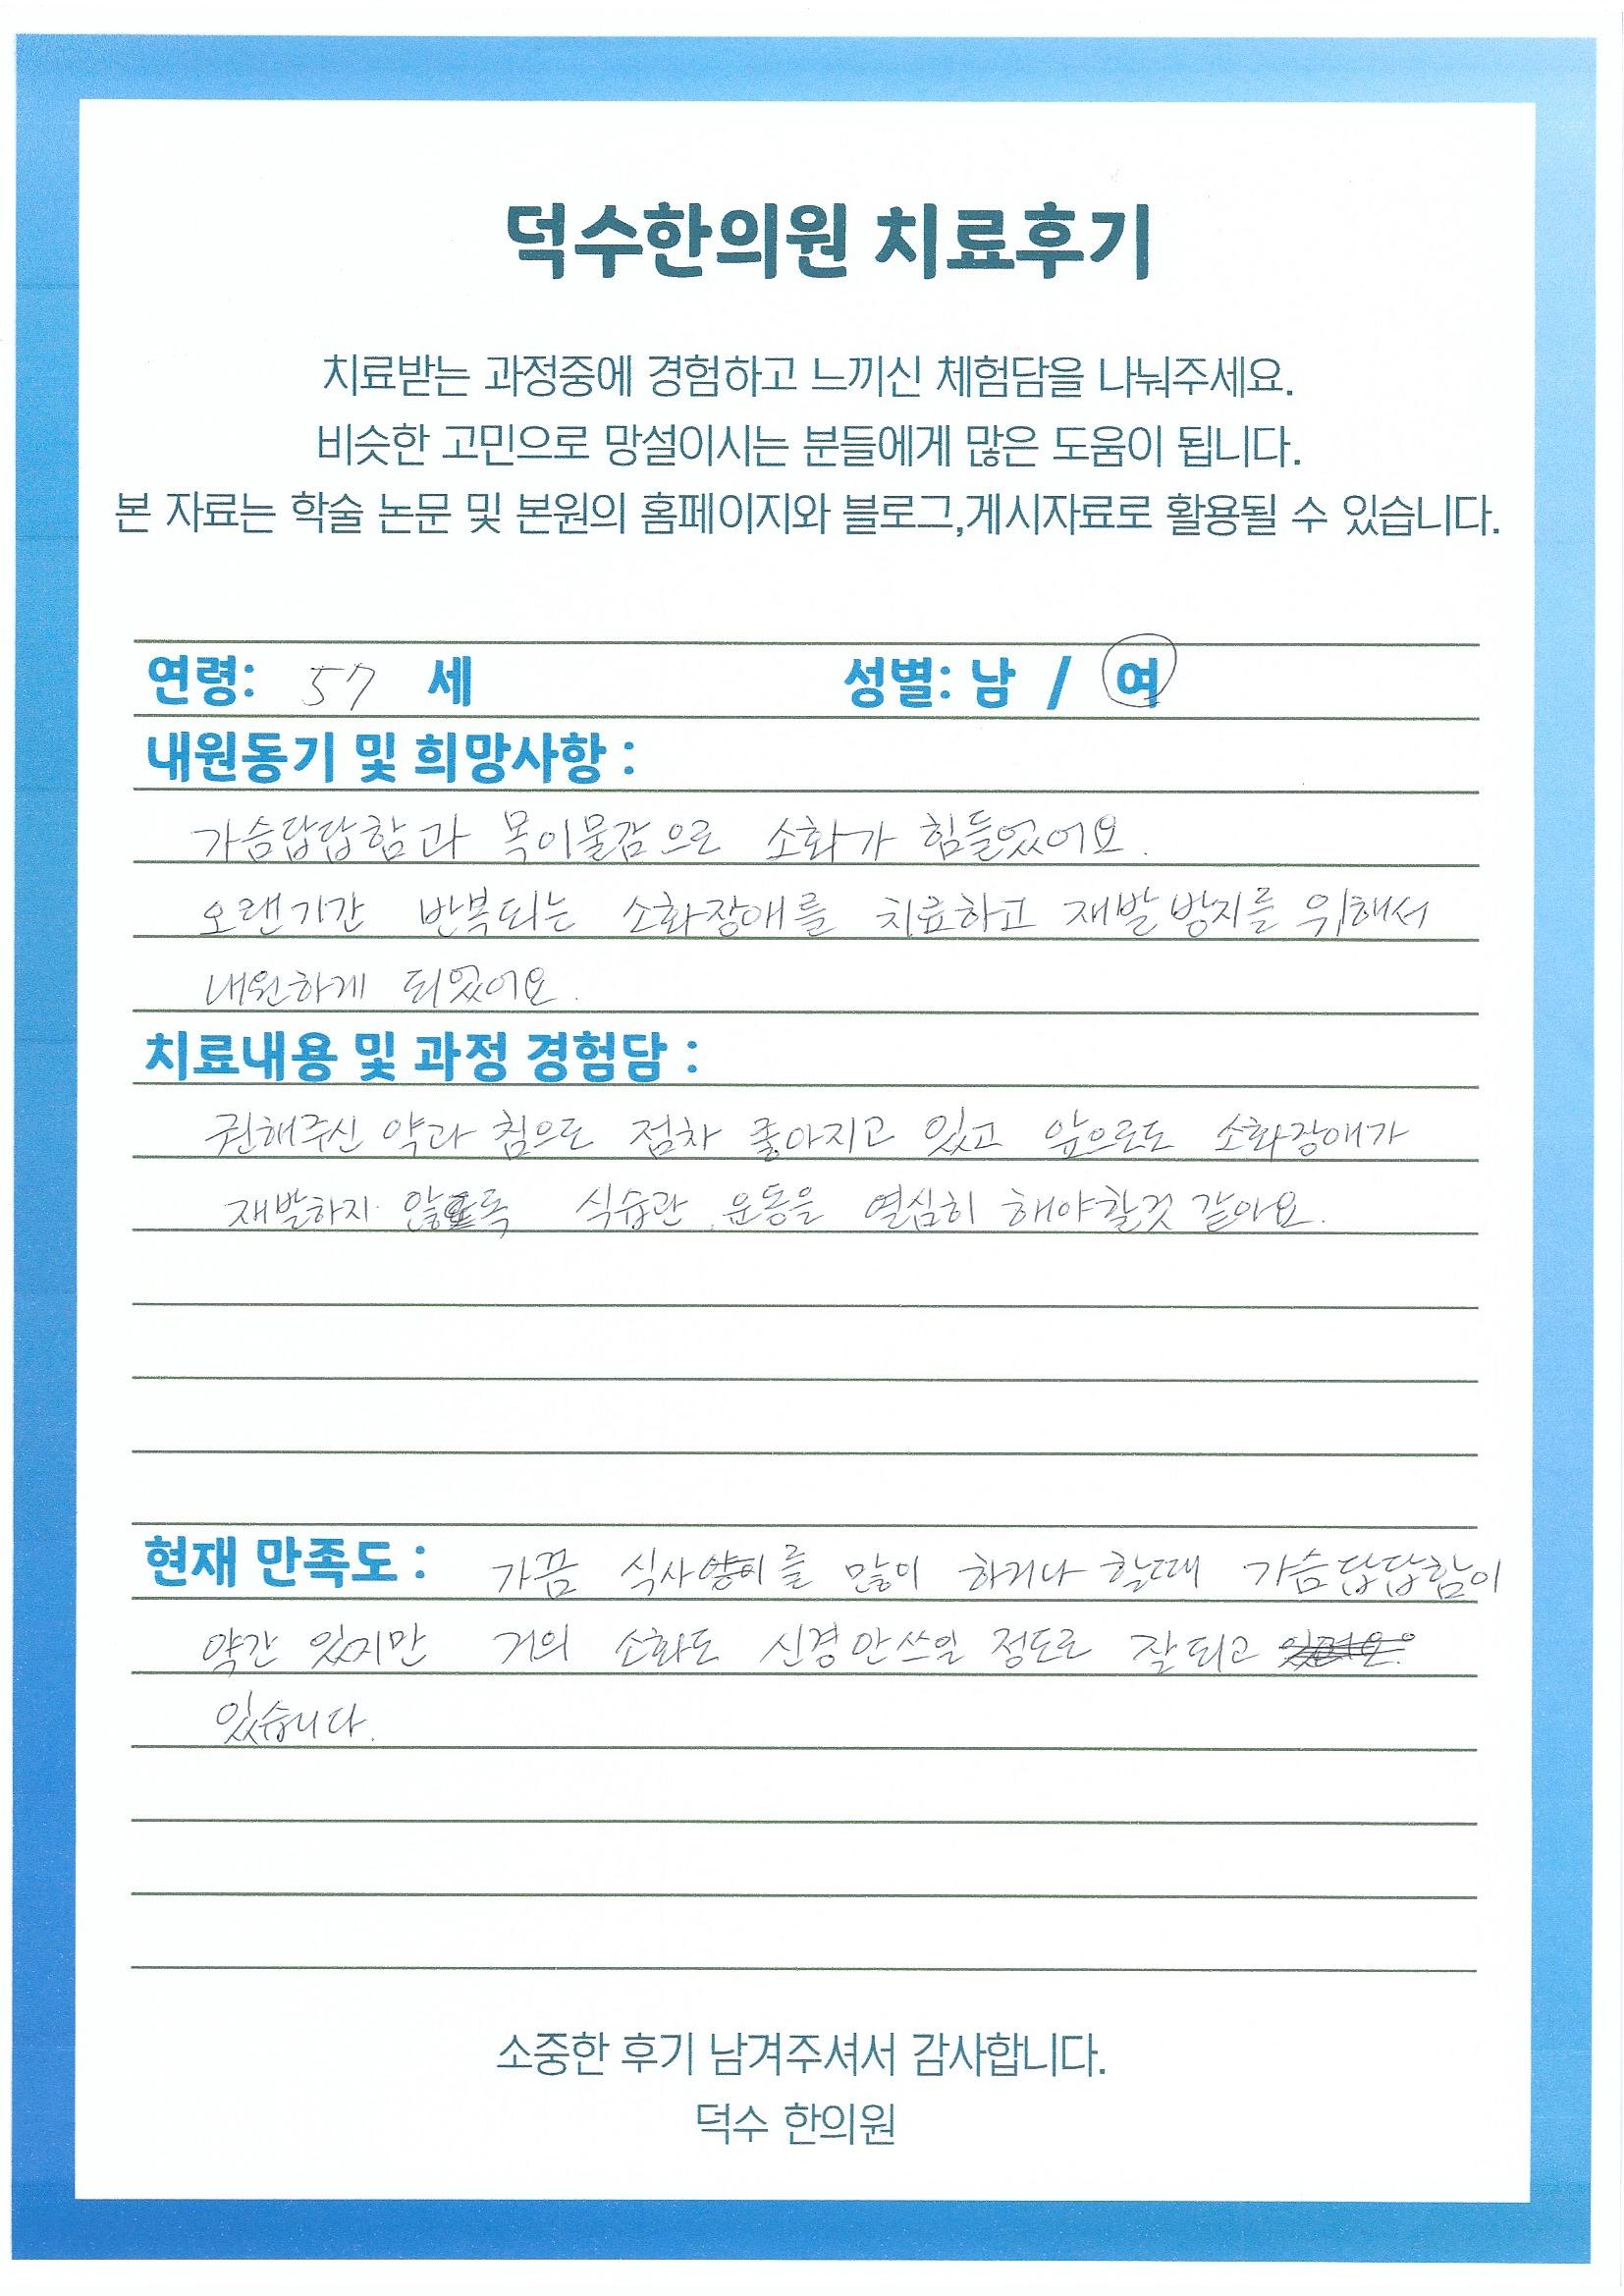 덕수한의원 치료후기
치료받는 과정중에 경험하고 느끼신 체험담을 나눠주세요.
비슷한 고민으로 망설이시는 분들에게 많은 도움이 됩니다.
본 자료는 학술 논문 및 본원의 홈페이지와 블로그,게시자료로 활용될 수 있습니다.
연령: 57 세 성별: 남 / 여
내원동기 및 희망사항 :
가슴답답함과 목이물감으로 소화가 힘들었어요.
오랜기간 반복되는 소화장애를 치료하고 재발방지를 위해서
내원하게 되었어요.
치료내용 및 과정 경험담 :
권해주신 약과 침으로 점차 좋아지고 있고 앞으로도 소화장애가
재발하지 않도록 식습관, 운동을 열심히 해야할것 같아요.
현재 만족도 : 가끔 식사량를 많이 하거나 할때 가슴답답함이
약간 있지만 거의 소화도 신경안쓰일 정도로 잘되고
있습니다.
소중한 후기 남겨주셔서 감사합니다.
덕수 한의원